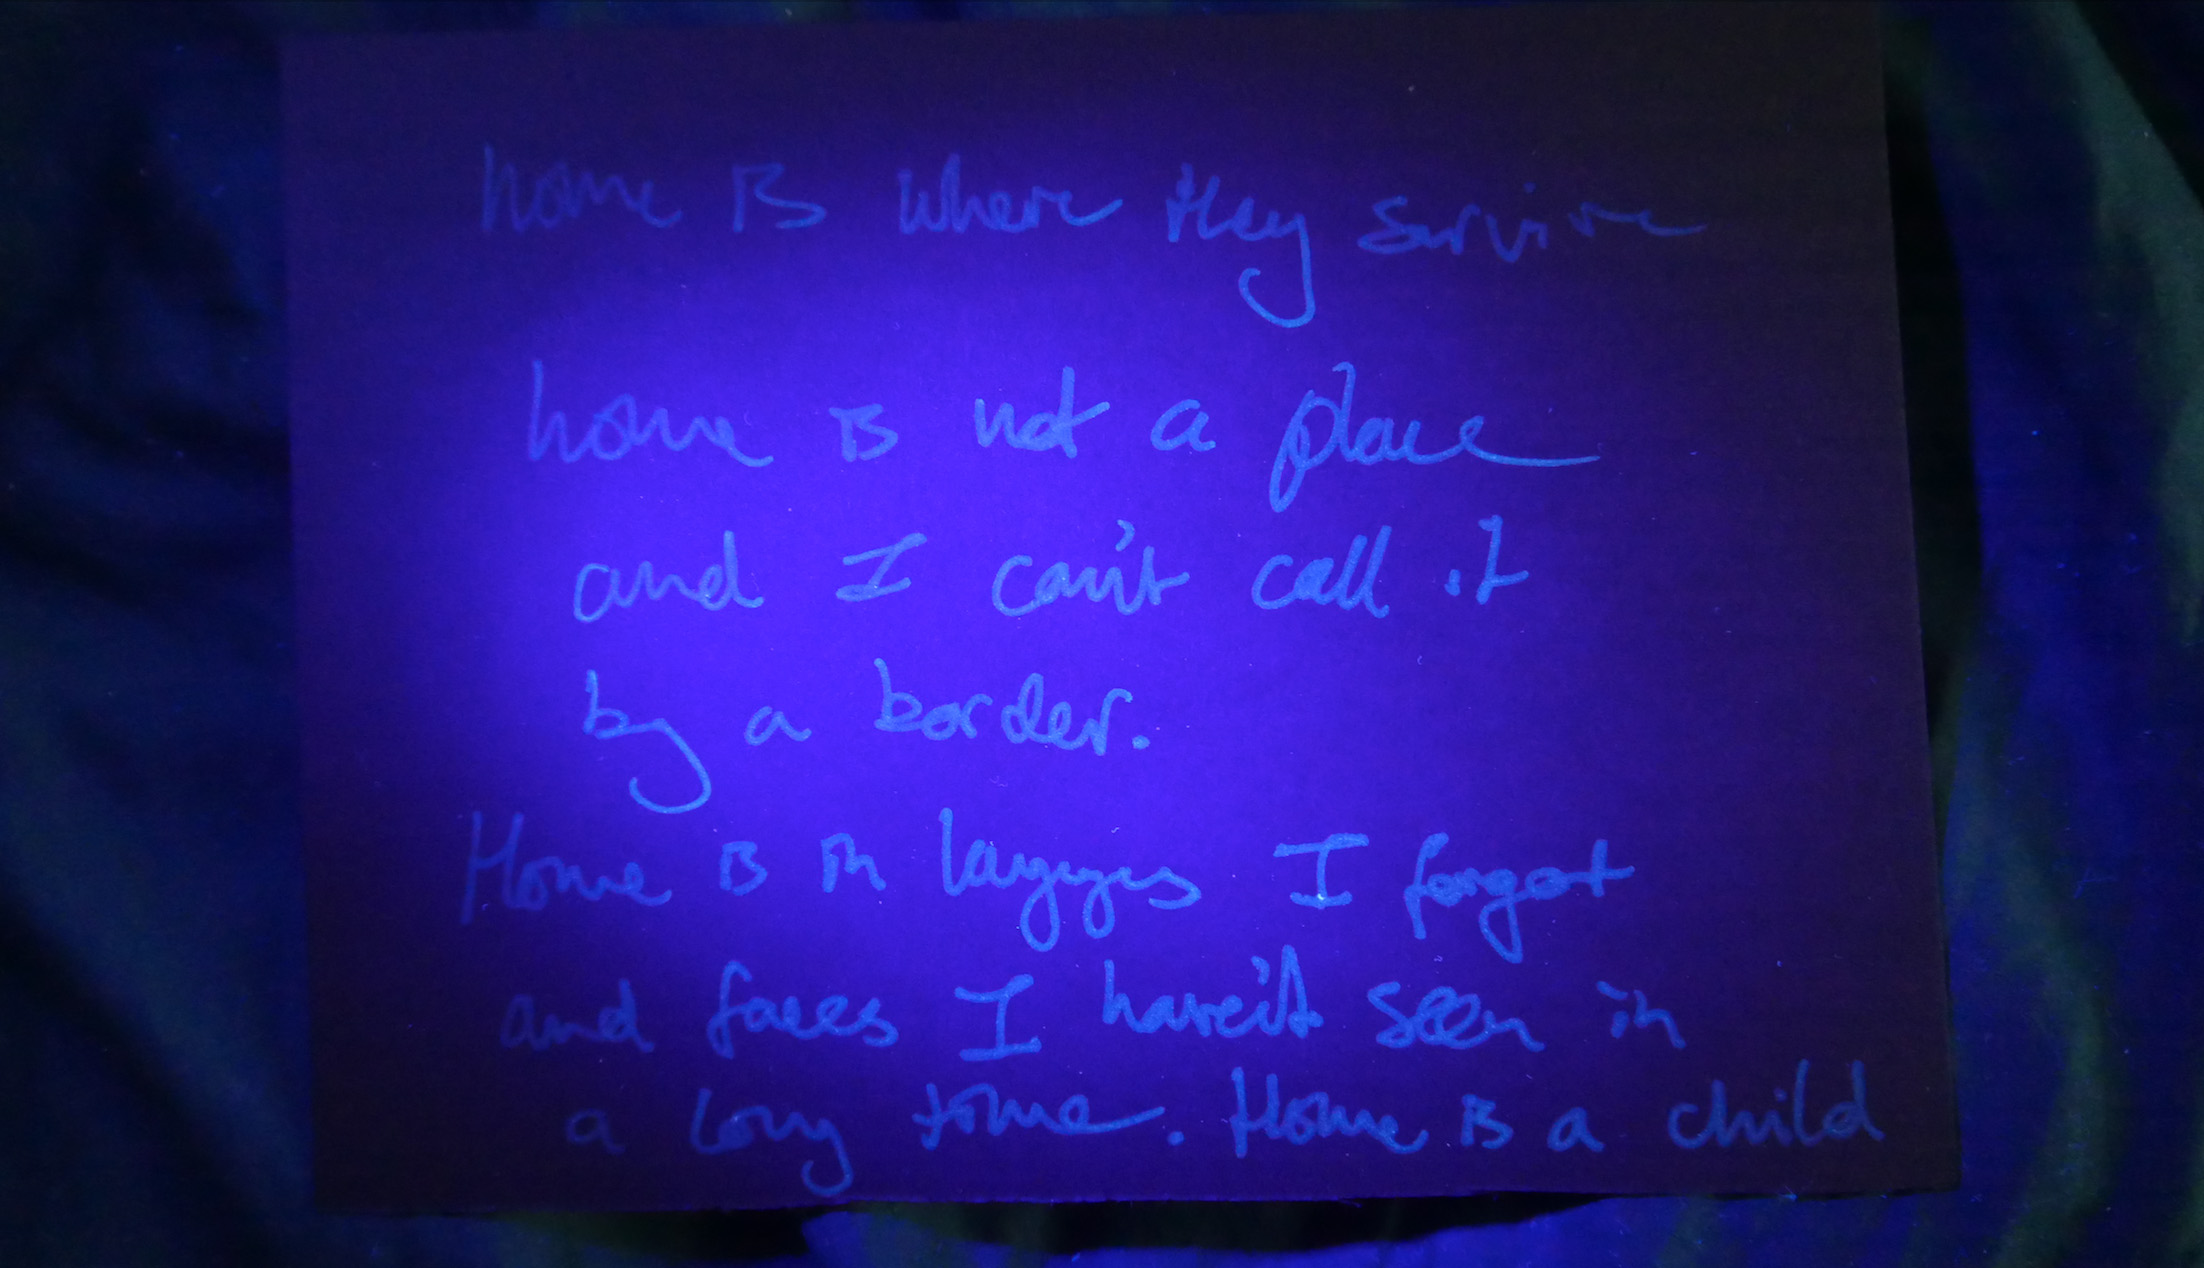 home is where they survive
home is not a place
and I can't call it
by a border.
Home is in I forgot
and faces I haven't seen in
a long time. Home is a child